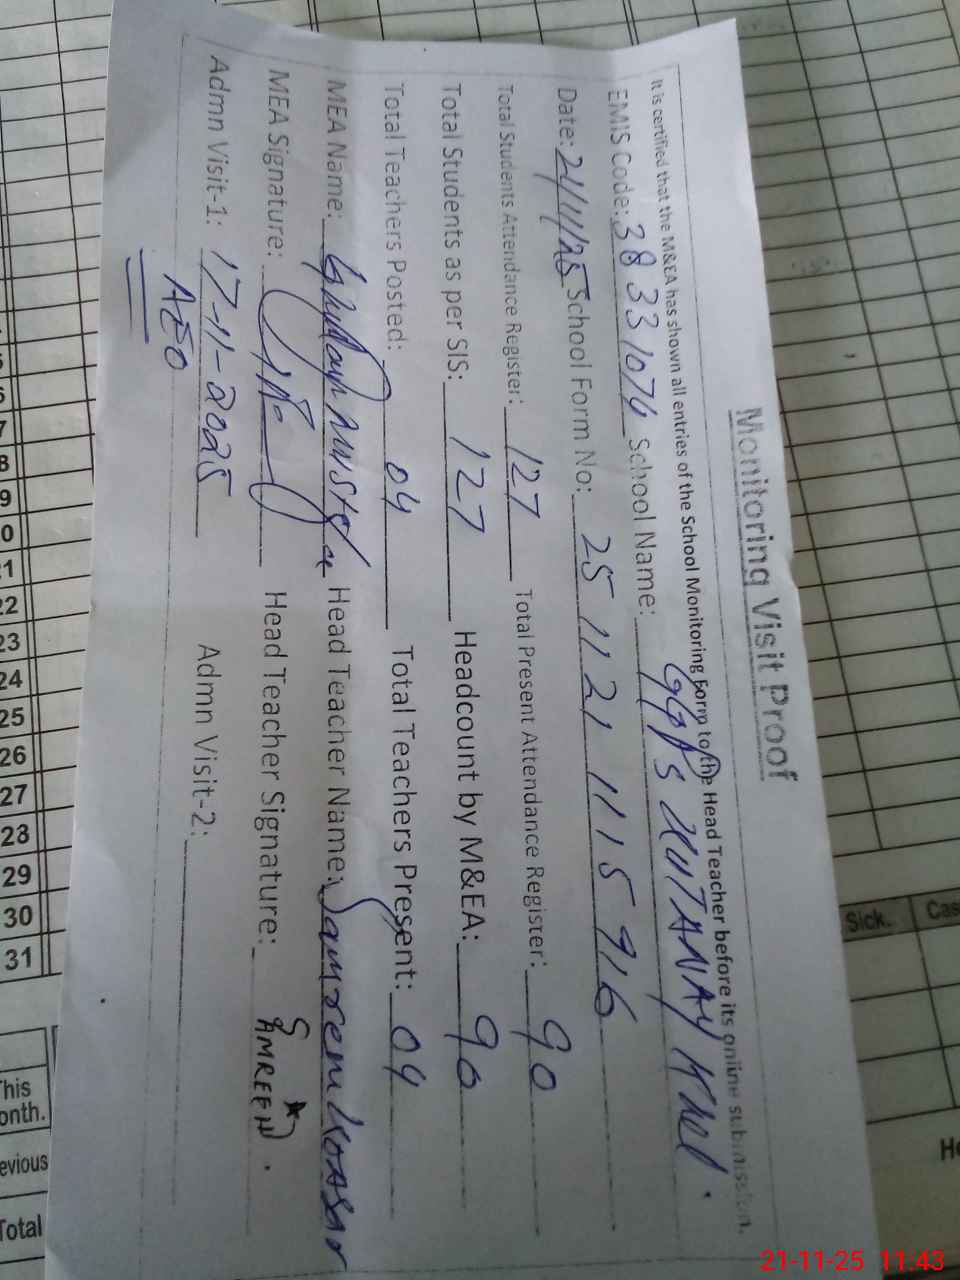 Monitoring Visit Proof
It is certified that the M&EA has shown all entries of the School Monitoring Form to the Head Teacher before its online submission.
EMIS Code: 38331074 School Name: GGPS KUTANAY Khel.
Date: 21/11/25 School Form No: 25 11 21 11 15 916
Total Students Attendance Register: 127 Total Present Attendance Register: 90
Total Students as per SIS: 127 Headcount by M&EA: 90
Total Teachers Posted: 04 Total Teachers Present: 04
MEA Name: Head Teacher Name:
MEA Signature: Head Teacher Signature: SAMREEN
Admn Visit-1: 17-11-2025 Admn Visit-2:
AEO
Sick.
22
23
24
25
26
27
28
29
30
31
Total
21-11-25 11:43